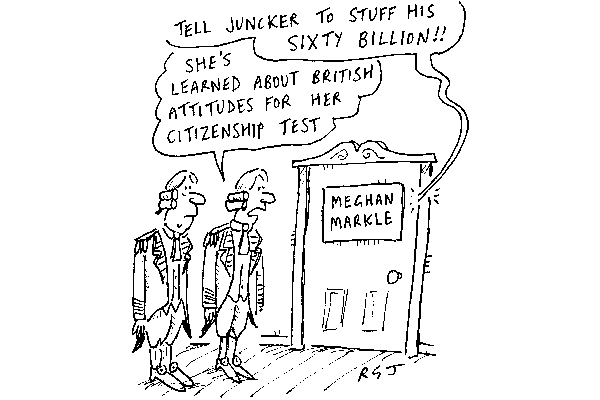 TELL JUNCKER TO STUFF HIS
SIXTY BILLION!!
SHE'S
LEARNED ABOUT BRITISH
ATTITUDES FOR HER
CITIZENSHIP TEST
MEGHAN
MARKLE
RGJ